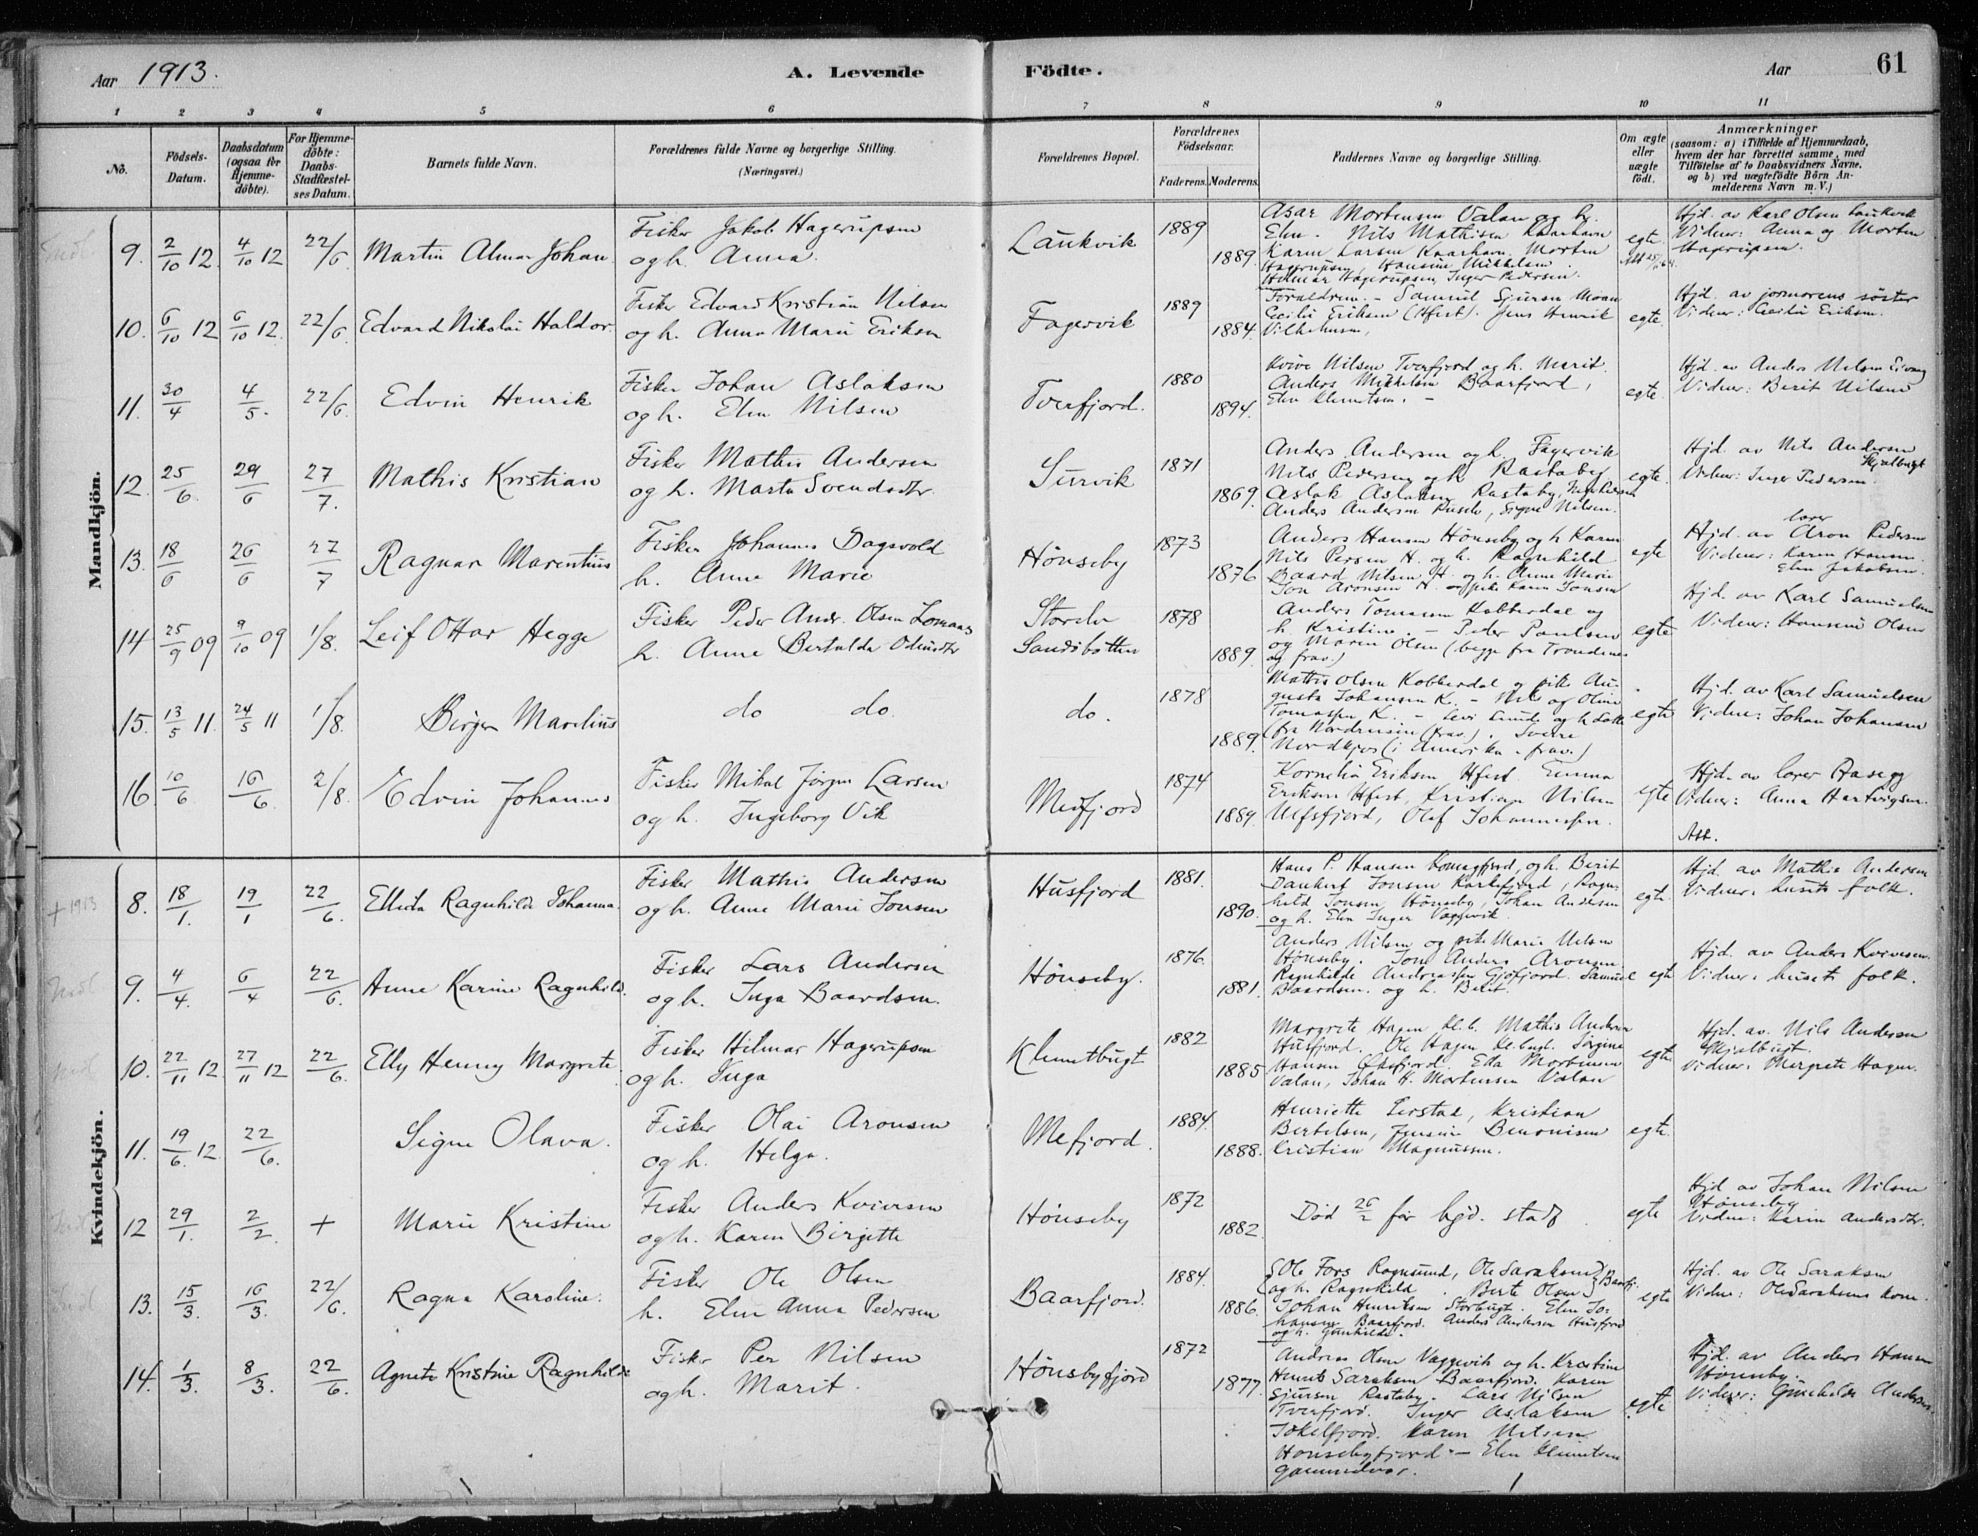 Aar 1913. A. Levende Födte. Aar 61
1 2 3 4 5 6 7 8 9 10 11
No.
Födsels-Datum.
Daabsdatum (ogsaa för Hjemme-döbte).
For Hjemme-döbte: Daabs-Stadfæstel-ses Datum.
Barnets fulde Navn.
Forældrenes fulde Navne og borgerlige Stilling. (Næringsvei.)
Forældrenes Bopæl.
Forældrenes Födselsaar.
Faderens. Moderens.
Faddernes Navne og borgerlige Stilling.
Om ægte eller uægte födt.
Anmærkninger
(saasom: a) i Tilfælde af Hjemmedaab,
hvem der har forrettet samme, med
Tilföielse af to Daabsvidners Navne,
og b) ved uægtefödte Börn An-
melderens Navn m. V.)
Mandkjön.
9. 2/10 12 4/10 12 22/6 Martin Almar Johan
Fisker Jakob Hagerupsen
og h. Anna.
Laukvik 1889 1889.
Mortensen Valan og h.
Elen. Nils Mathisen Kaarhavn
Karen Larsen Kaarhavn. Morten
Hagerupsen, Hansine Mikkelsen
Hilmar Hagerupsen, Inger Pedersen.
egte
Hjd. av Karl Olsen Laukvik
Vidner: Anna og Morten
Hagerupsen.
10. 6/10 12 6/10 12. 22/6. Edvard Nikolai Haldor.
Fisker Edvard Kristian Nilsen
og h. Anna Marie Eriksen
Fagervik 1889 1884.
Forældrene. - Samuel Sjursen
Cecilie Eriksen (Hfest). Jens Henrik
Vilhelmsen,
egte.
Hjd. av jormorens söster
Vidner: Cecilie Eriksen.
11. 30/4 4/5. 22/6. Edvin Henrik
Fisker Johan Aslaksen
og h. Elen Nilsen
Tverfjord. 1880 1894.
Nilsen Tverfjord og h. Marit.
Anders Mikkelsen Baarfjord,
Elen Klemetsen. -
egte.
Hjd. av Anders Nilsen
Vidner: Berit Nilsen
12. 25/6. 29/6 27/7. Mathis Kristian
Fisker Mathis Andersen
og h. Marta Svendsdtr.
Survik 1871 1869.
Anders Andersen og h. Fagervik
Nils Pedersen og h. Rastaby
Aslak Aslaksen Rastaby,
Anders Andersen, Signe Nilsen.
egte.
Hjd. av Nils Andersen
Skjalbugt
Vidner: Inger Pedersen.
13. 18/6 26/6 27/7 Ragnar Marentius
Fisker Johannes Dagsvold
h. Anne Marie
Hönseby 1873 1876.
Anders Hansen Hönseby og h. Karen
Nils Persen H. og h. Ragnhild
Baard Nilsen H. og h. Anne Marie
Jon Aronsen H. og pike Karen Jonsen
egte
Hjd. av lærer Aron Pedersen
Vidner: Karen Hansen
Elen Jakobsen.
14 25/9 09 9/10 09 1/8. Leif Ottar Hegge
Fisker Peder Andr. Olsen
h. Anne Bertulda
Sandbotten 1878 1889.
Anders Tomassen Kobberdal og
h. Kristine. - Peder Paulsen
og Maren Olsen (begge fra Trondenes
og frav.)
egte
Hjd. av Karl Samuelsen
Vidner: Hansine Olsen
15. 13/5 11. 24/5 11 1/8. Birger Marelius
do do.
do. 1878 1889.
Mathis Olsen Kobberdal og pike Au-
gusta Johansen K. - Nils og Oline
Tomassen K. -
(fra Nordreisen frav.).
(i Amerika - frav.)
egte
Hjd. av Karl Samuelsen
Vidner: Johan Johansen
16 10/6 16/6. 2/8. Edvin Johannes
Fisker Mikal Jörgen Larsen
og h. Ingeborg Vik
Mefjord 1874 1889.
Kornelia Eriksen Hfest. Emma
Eriksen Hfest, Kristian Nilsen
Ulfsfjord, Olaf Johannessen.
egte
Hjd. av lærer Aasegg
Vidner: Anna Hartvigsen.
Att.
Kvindekjön.
+ 1913
8. 18/1. 19/1 22/6. Ellida Ragnhild Johanna.
Fisker Mathis Andersen
og h. Anne Marie Jonsen
Husfjord 1881. 1890.
Hans P. Hansen og h. Berit
Dankert Jonsen, Ragn-
hild Jonsen, Hönseby, Johan Andersen
og h. Elen Inger Vaggevik.
egte.
Hjd. av Mathis Andersen
Vidner: husets folk.
9. 4/4. 6/4 22/6. Anne Karine Ragnhild.
Fisker Lars Andersen
og h. Inga Baardsen.
Hönseby. 1876. 1881.
Anders Nilsen og pike Marie Nilsen
Hönseby. Jon Anders Aronsen
Ragnhilde Andreassen. Samuel
Baardsen. og h. Berit.
egte
Hjd. av Anders Kvivesen.
Vidner: husets folk.
10. 22/11 12 27/11 12 22/6. Elly Henny Margrete.
Fisker Hilmar Hagerupsen
og h. Inga
Klemetbugt 1882 1885
Margrete Hagen Kl.b. Mathis Andersen
Husfjord. Ole Hagen Kl.bugt. Jörgine
Hansen Öksfjord. Etta Mortensen
Valan, Johan H. Mortensen Valan
egte.
Hjd. av. Nils Andersen
Skjalbugt.
Vidner: Mergrete Hagen.
11. 19/6. 12 22/6. Signe Olava.
Fisker Olai Aronsen
og h. Helga.
Mefjord. 1884. 1888.
Henriette, Kristian
Bertelsen, Jensine Benonisen
Kristian Magnussen.
egte.
12 29/1. 2/2. + Marie Kristine
Fisker Anders Kvivesen
og h. Karen Birgitte
Hönseby 1872 1882.
Död 26/2 för hjd. stadf.
egte
Hjd av Johan Nilsen
Hönseby
Vidner: Karen Andersdtr.
13. 15/3. 16/3. 22/6. Ragna Karoline.
Fisker Ole Olsen
h. Elen Anna Pedersen
Baarfjord. 1884. 1886.
Ole Fors Rognsund, Ole Saraksen
og h. Ragnhild. Berte Olsen
Johan Henriksen Storbugt. Elen Jo-
hansen Baarfjord. Anders Andersen Husfjord
og h. Gunhilde.
egte
Hjd. av Ole Saraksen
Vidner: Ole Saraksens kone.
14. 1/3. 8/3. 22/6. Agnete Kristine Ragnhilde
Fisker Per Nilsen
og h. Marit.
Hönsebyfjord 1872 1877.
Andreas Olsen Vaggevik og h. Kristine
Henrik Saraksen Baarfjord. Karen
Sjursen Rastaby. Lars Nilsen
Tverfjord. Inger Aslaksen
Jökelfjord. Karen Nilsen
Hönsebyfjord. - Elen Klemetsen
Gammelvær.
egte
Hjd. av Anders Hansen
Hönseby.
Vidner: Gunhilde Andersen.